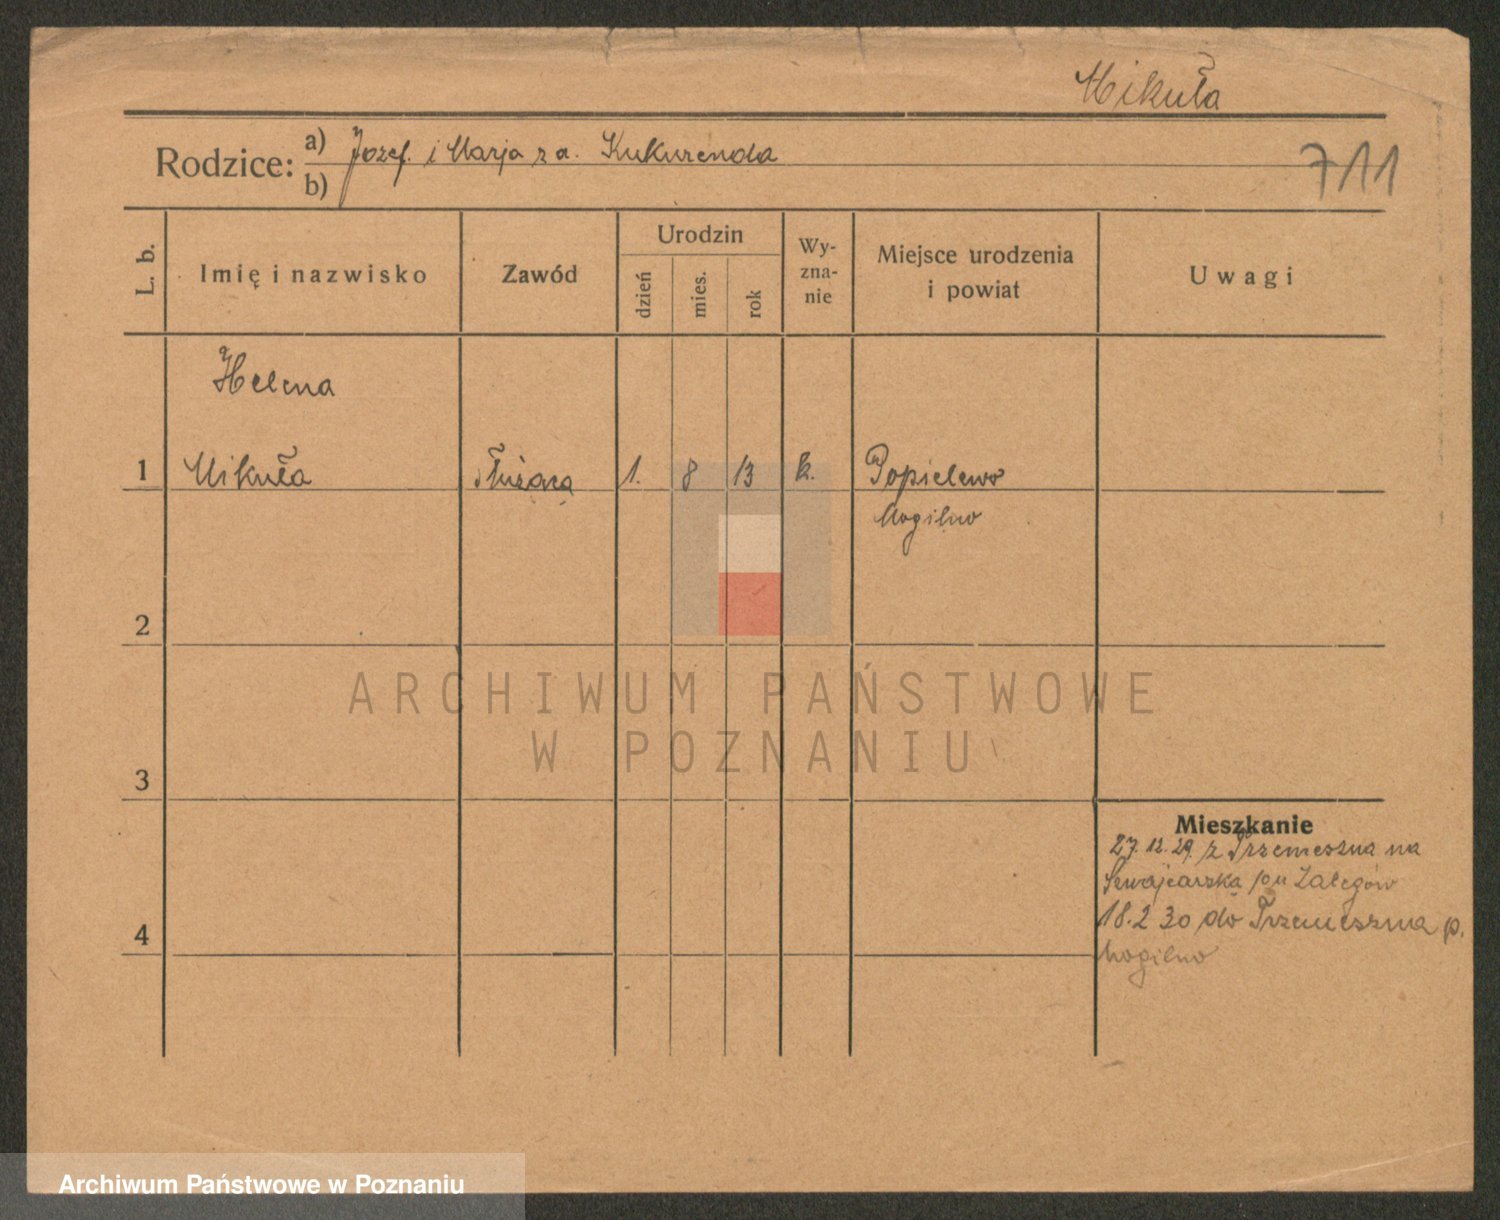 Mikuła
Rodzice: a) Józef. i Marja z a. Kukurenda
b)
711
L. b.
Imię i nazwisko
Zawód
Urodzin
dzień
mies.
rok
Wy-
zna-
nie
Miejsce urodzenia
i powiat
Uwagi
Helena
1 Mikuła służąca 1. 8 13 k. Popielewo
Mogilno
2
3
4
Mieszkanie
27.12.29 z Trzemeszna na
Szwajcarska
18.2 30 do Trzemeszna p.
Mogilno
ARCHIWUM PAŃSTWOWE
W POZNANIU
Archiwum Państwowe w Poznaniu